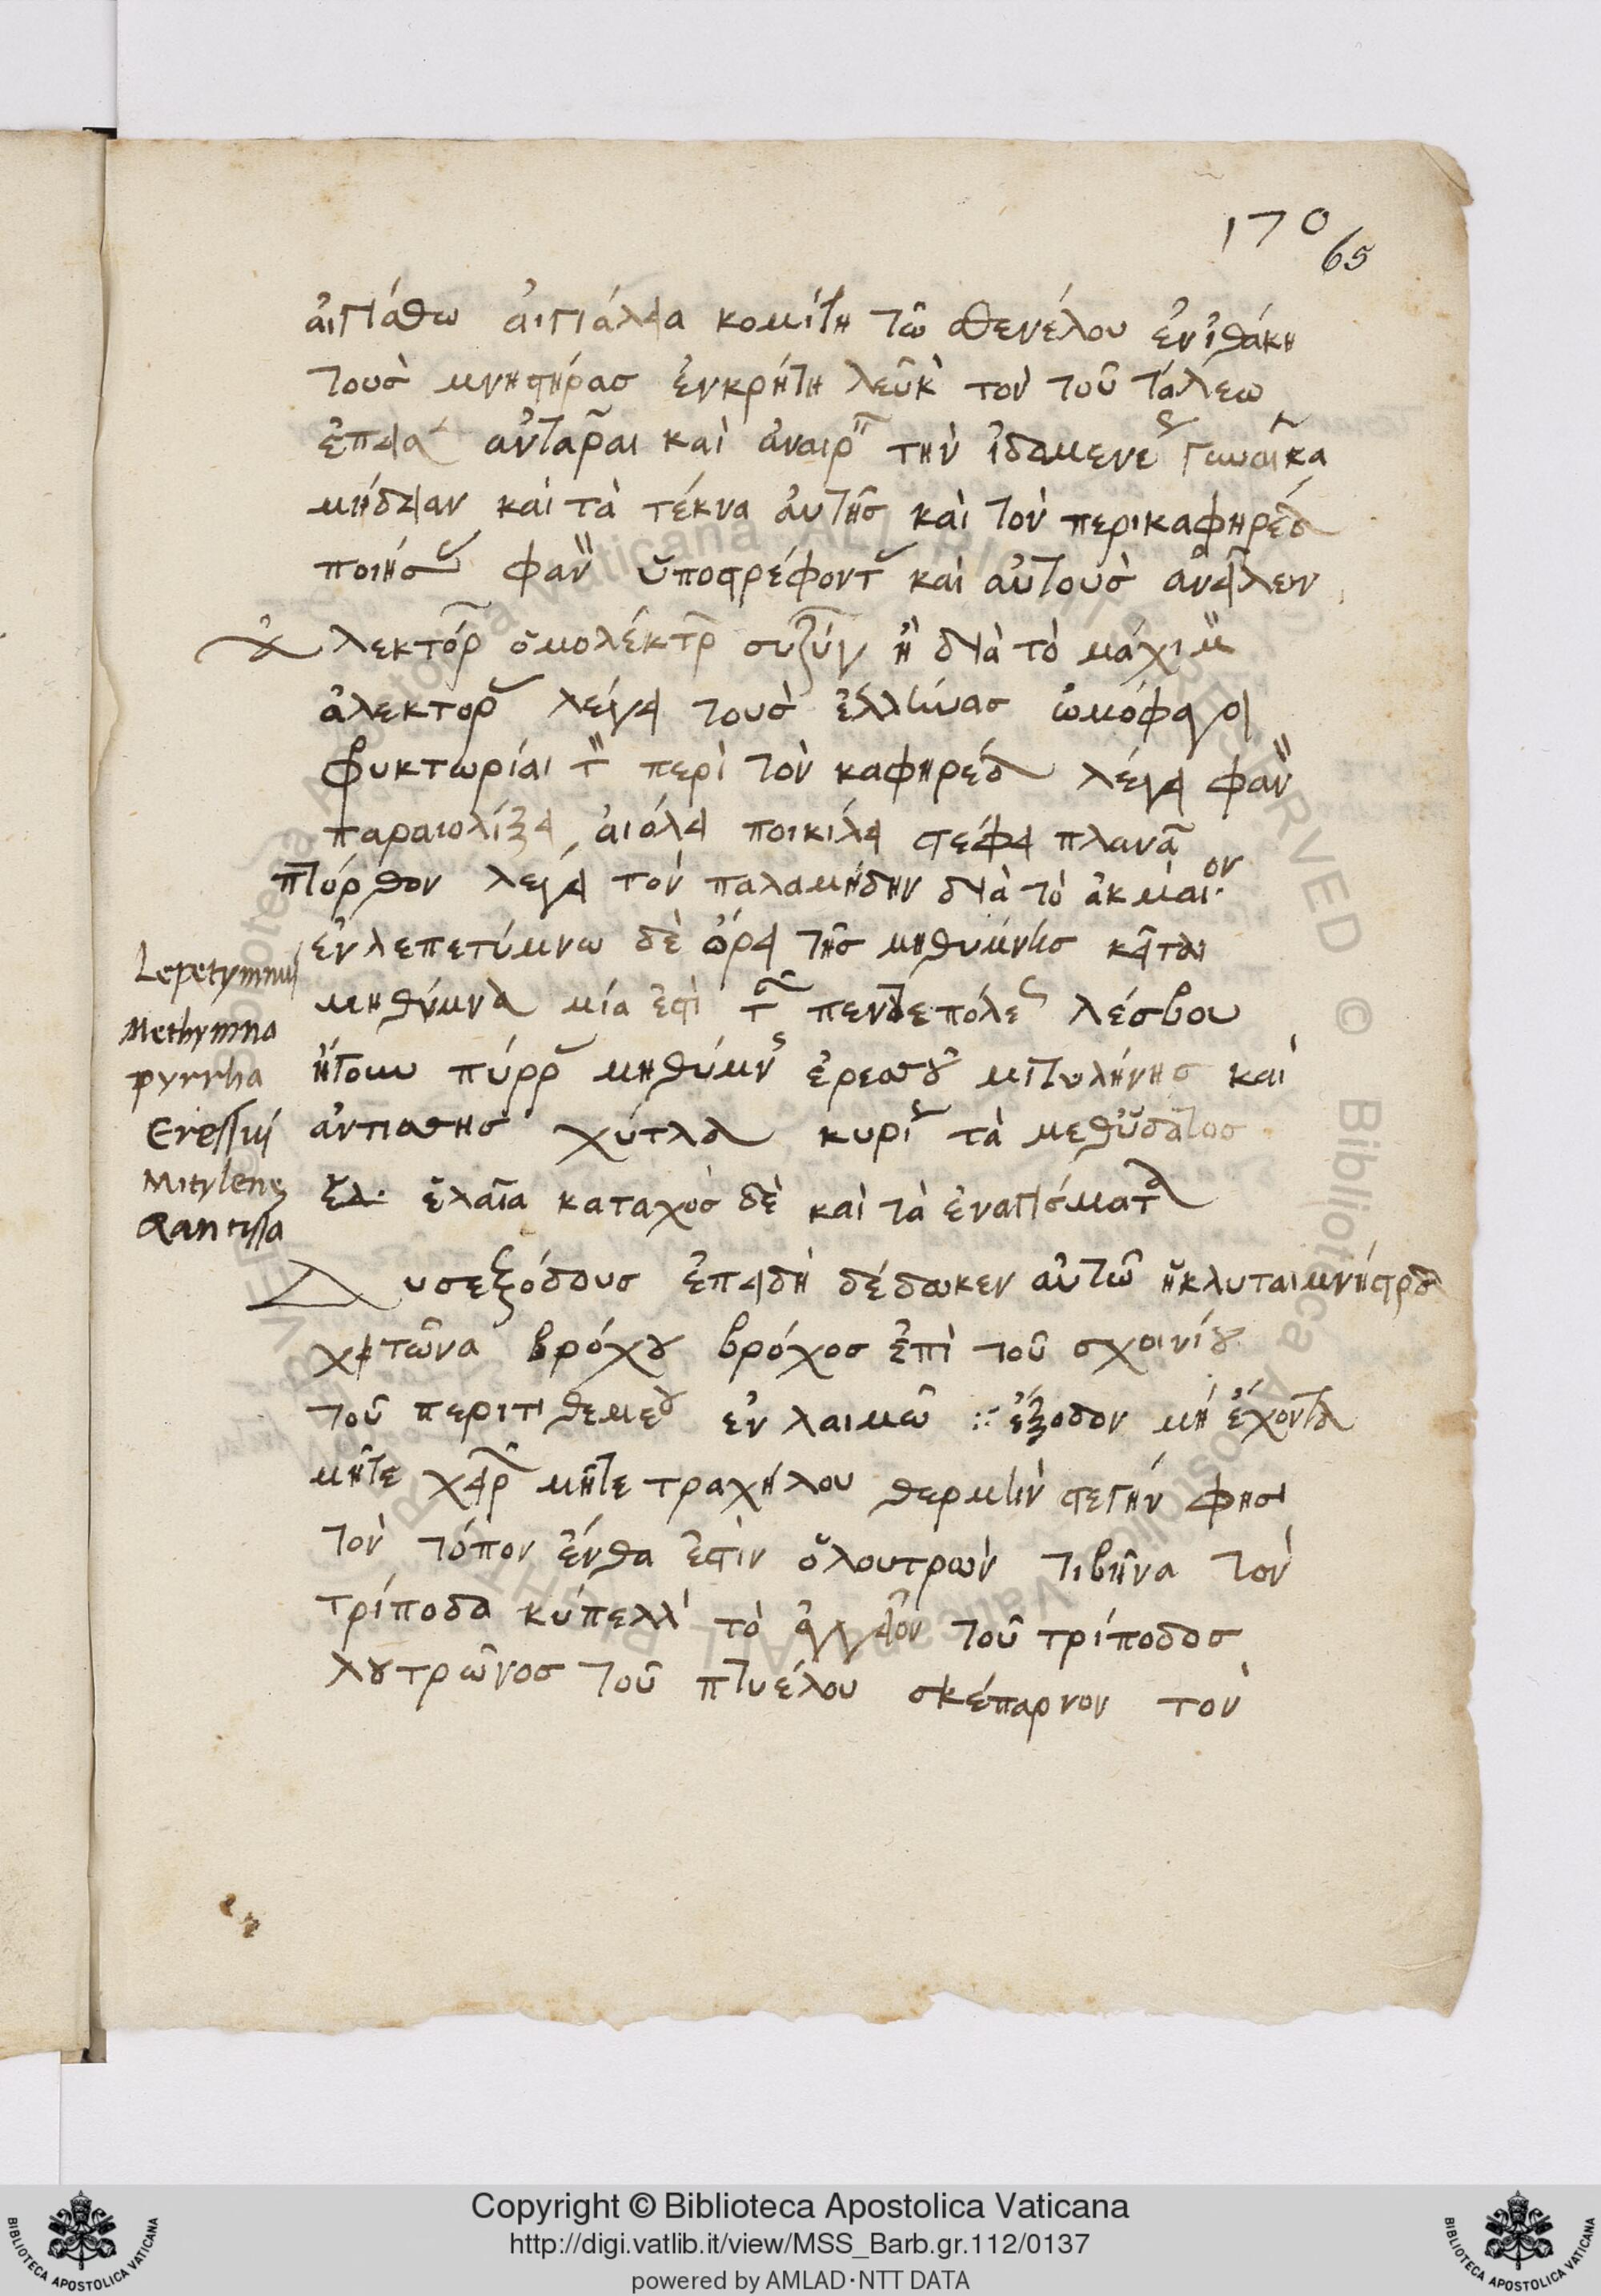 170
65
αἰγιάθω αἰγιάλεια κομίτη τῶ σθενέλου ἐν ἰθάκη
τοὺσ μνηστήρασ ἐν κρήτη λεῦκ τὸν τοῦ τάλεω
ἔπεισ ἀντᾶραι καὶ ἀναιρ τὴν ἰδομενέ γυναῖκα
μήδειαν καὶ τὰ τέκνα αὐτῆσ καὶ τὸν περικαφηρέα
ποιήσ φαν ὑποστρέφοντ καὶ αὐτοὺσ ἀνεῖλεν
ἀλεκτόρ ὁμολέκτρ συζύγ ἢ διὰ τὸ μάχιμ
ἀλεκτορ λέγει τοὺσ ἕλληνασ ὠμόφαγοι
φυκτωρίαι τ περὶ τὸν καφηρέα λέγει φαν
παραιολίξει, αἰόλει ποικίλει στέφει πλανᾶ
πτόρθον λέγει τὸν παλαμήδην διὰ τὸ ἀκμαῖον
ἐν λεπετύμνω δὲ ὄρει τῆσ μηθύμνησ κεῖται
μήθυμνα μία ἐστὶ τ πενταπόλε λέσβου
ἤτουν πύρρ μηθύμν ἐρεσσοῦ μιτυλήνησ καὶ
ἀντισσησ χύτλα κυρί τὰ μεθ ὕδατοσ
ἔλ. ἔλαια καταχ δὲ καὶ τὰ ἐναγίσματα
Δυσεξόδουσ ἐπειδὴ δέδωκεν αὐτῶ ἡ κλυταιμνήστρα
χιτῶνα βρόχου βρόχοσ ἐπὶ τοῦ σχοινίου
τοῦ περιτιθεμε ἐν λαιμῶ :· ἔξοδον μὴ ἔχοντα
μήτε χειρ μήτε τραχήλου θερμὴν στέγην φησι
τὸν τόπον ἔνθα ἐστὶν ὁ λουτρὼν τιβῆνα τὸν
τρίποδα κύπελλ τὸ ἀγγεῖον τοῦ τρίποδοσ
λουτρῶνοσ τοῦ πτυέλου σκέπαρνον τὸν
Lepetymnus
Methymna
pyrrha
Eressus
Mitylene
Antissa
Copyright © Biblioteca Apostolica Vaticana
http://digi.vatlib.it/view/MSS_Barb.gr.112/0137
powered by AMLAD·NTT DATA
BIBLIOTECA APOSTOLICA VATICANA
BIBLIOTECA APOSTOLICA VATICANA